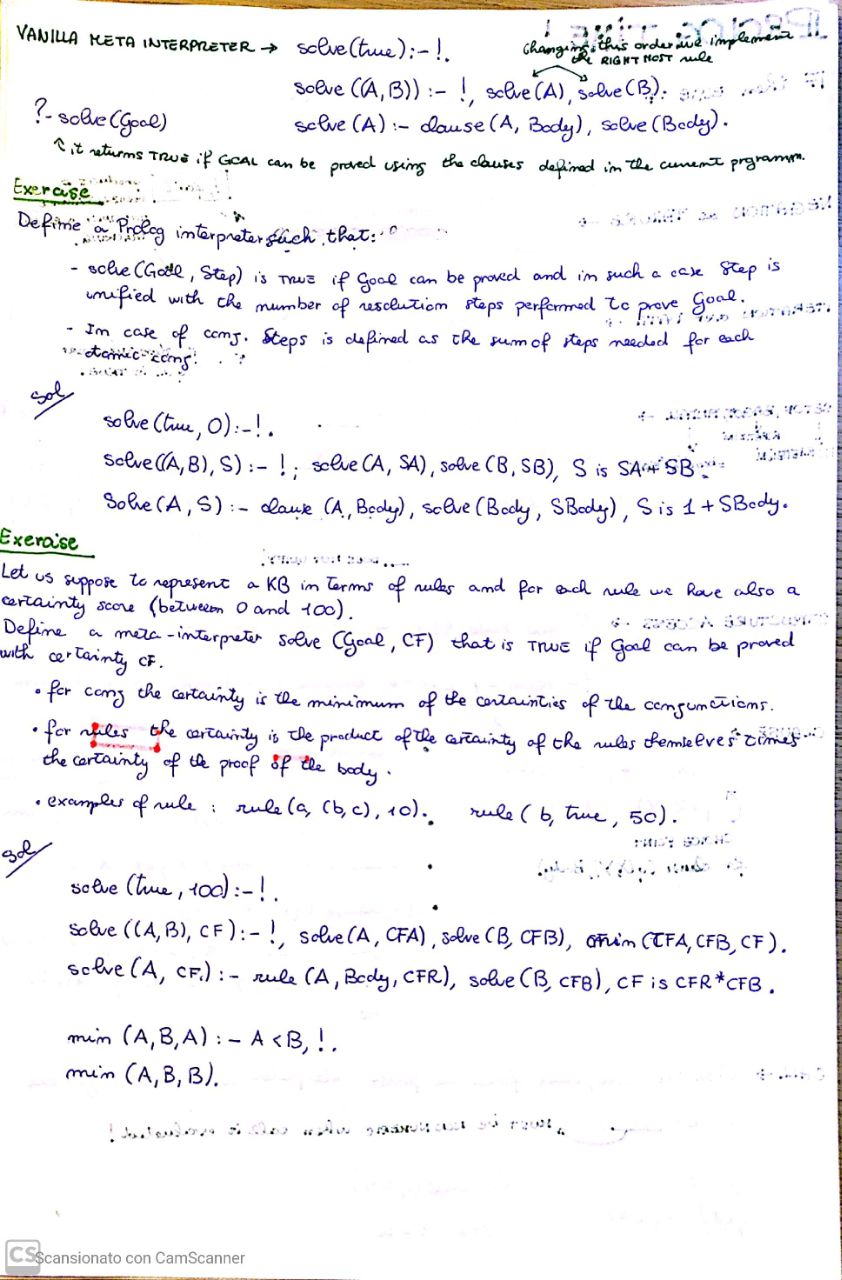 VANILLA META INTERPRETER → solve(true):-!.
changing this order we implement the RIGHT MOST rule
solve ((A,B)) :- !, solve(A), solve(B).
?- solve(Goal)
solve(A) :- clause(A, Body), solve(Body).
↑ it returns TRUE if GOAL can be proved using the clauses defined in the current prgramm.
Exercise
Define a Prolog interpreter such that:
- solve(Goal, Step) is TRUE if Goal can be proved and in such a case Step is
unified with the number of resolution steps performed to prove Goal.
- In case of conj. Steps is defined as the sum of steps needed for each
atomic conj.
Sol
solve(true, 0):-!.
solve((A,B), S) :- !, solve(A, SA), solve(B, SB), S is SA+SB.
Solve(A, S) :- clause (A, Body), solve(Body, SBody), S is 1 + SBody.
Exercise
Let us suppose to represent a KB in terms of rules and for each rule we have also a
certainty score (between 0 and 100).
Define a meta-interpreter solve (Goal, CF) that is TRUE if Goal can be proved
with certainty CF.
• for conj the certainty is the minimum of the certainties of the conjunctions.
• for rules the certainty is the product of the certainty of the rules themselves times
the certainty of the proof of the body.
• examples of rule : rule(a, (b,c), 10). rule( b, true, 50).
Sol
solve (true, 100):-!.
solve ((A,B), CF):-!, solve(A, CFA), solve(B, CFB), min (CFA, CFB, CF).
solve (A, CF) :- rule (A, Body, CFR), solve (B, CFB), CF is CFR*CFB.
min (A,B,A) :- A<B, !.
min (A,B,B).
CS Scansionato con CamScanner